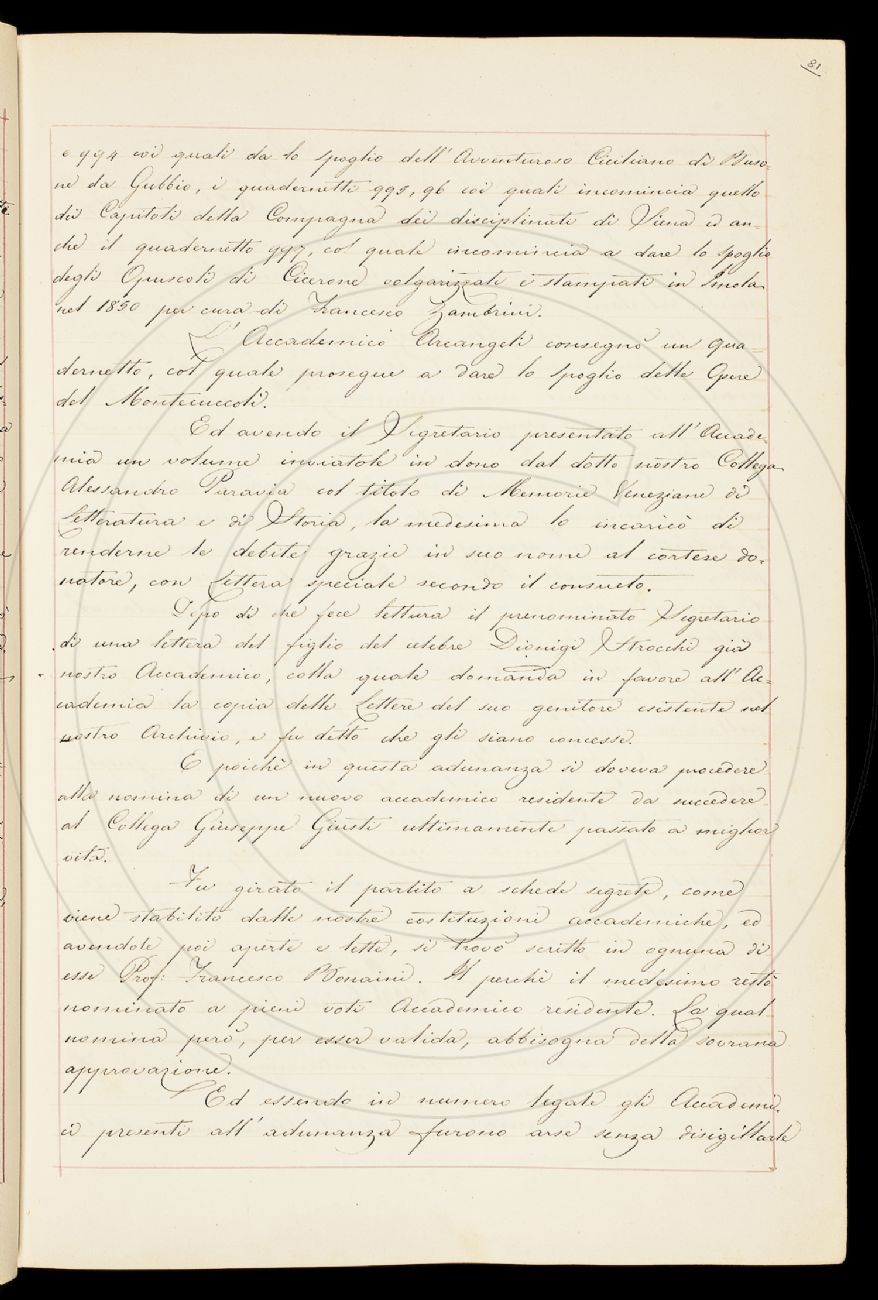 81
e 994 coi quali da lo spoglio dell' Avventuroso Ciciliano di Buso-
ne da Gubbio, i quadernetti 995, 96 coi quali incomincia quello
dei Capitoli della Compagna dei disciplinati di Siena ed an-
che il quadernetto 997, col quale incomincia a dare lo spoglio
degli Opuscoli di Cicerone volgarizzati e stampati in Imola
nel 1850 per cura di Francesco Zambrini.
L' Accademico Arcangeli consegnò un qua-
dernetto, col quale prosegue a dare lo spoglio delle Opere
del Montecuccoli.
Ed avendo il Segretario presentato all' Accade-
mia un volume inviatole in dono dal dotto nostro Collega
Alessandro Paravia col titolo di Memorie Veneziane di
Letteratura e di Storia, la medesima lo incaricò di
renderne le debite grazie in suo nome al cortese do-
natore, con Lettera speciale secondo il consueto.
Dopo di che fece lettura il prenominato Segretario
di una lettera del figlio del celebre Dionigi Strocchi già
nostro Accademico, colla quale domanda in favore all' Ac-
cademia la copia delle Lettere del suo genitore esistente nel
nostro Archivio, e fu detto che gli siano concesse.
E poichè in questa adunanza si doveva procedere
alla nomina di un nuovo accademico residente da succedere
al Collega Giuseppe Giusti ultimamente passato a miglior
vita.
Fu girato il partito a schede segrete, come
viene stabilito dalle nostre costituzioni accademiche, ed
avendole poi aperte e lette, si trovò scritto in ognuna di
esse Prof: Francesco Bonaini. Il perchè il medesimo restò
nominato a pieni voti Accademico residente. La qual
nomina però, per esser valida, abbisogna della sovrana
approvazione.
Ed essendo in numero legale gli Accademi-
ci presenti all' adunanza furono arse senza disigillarle